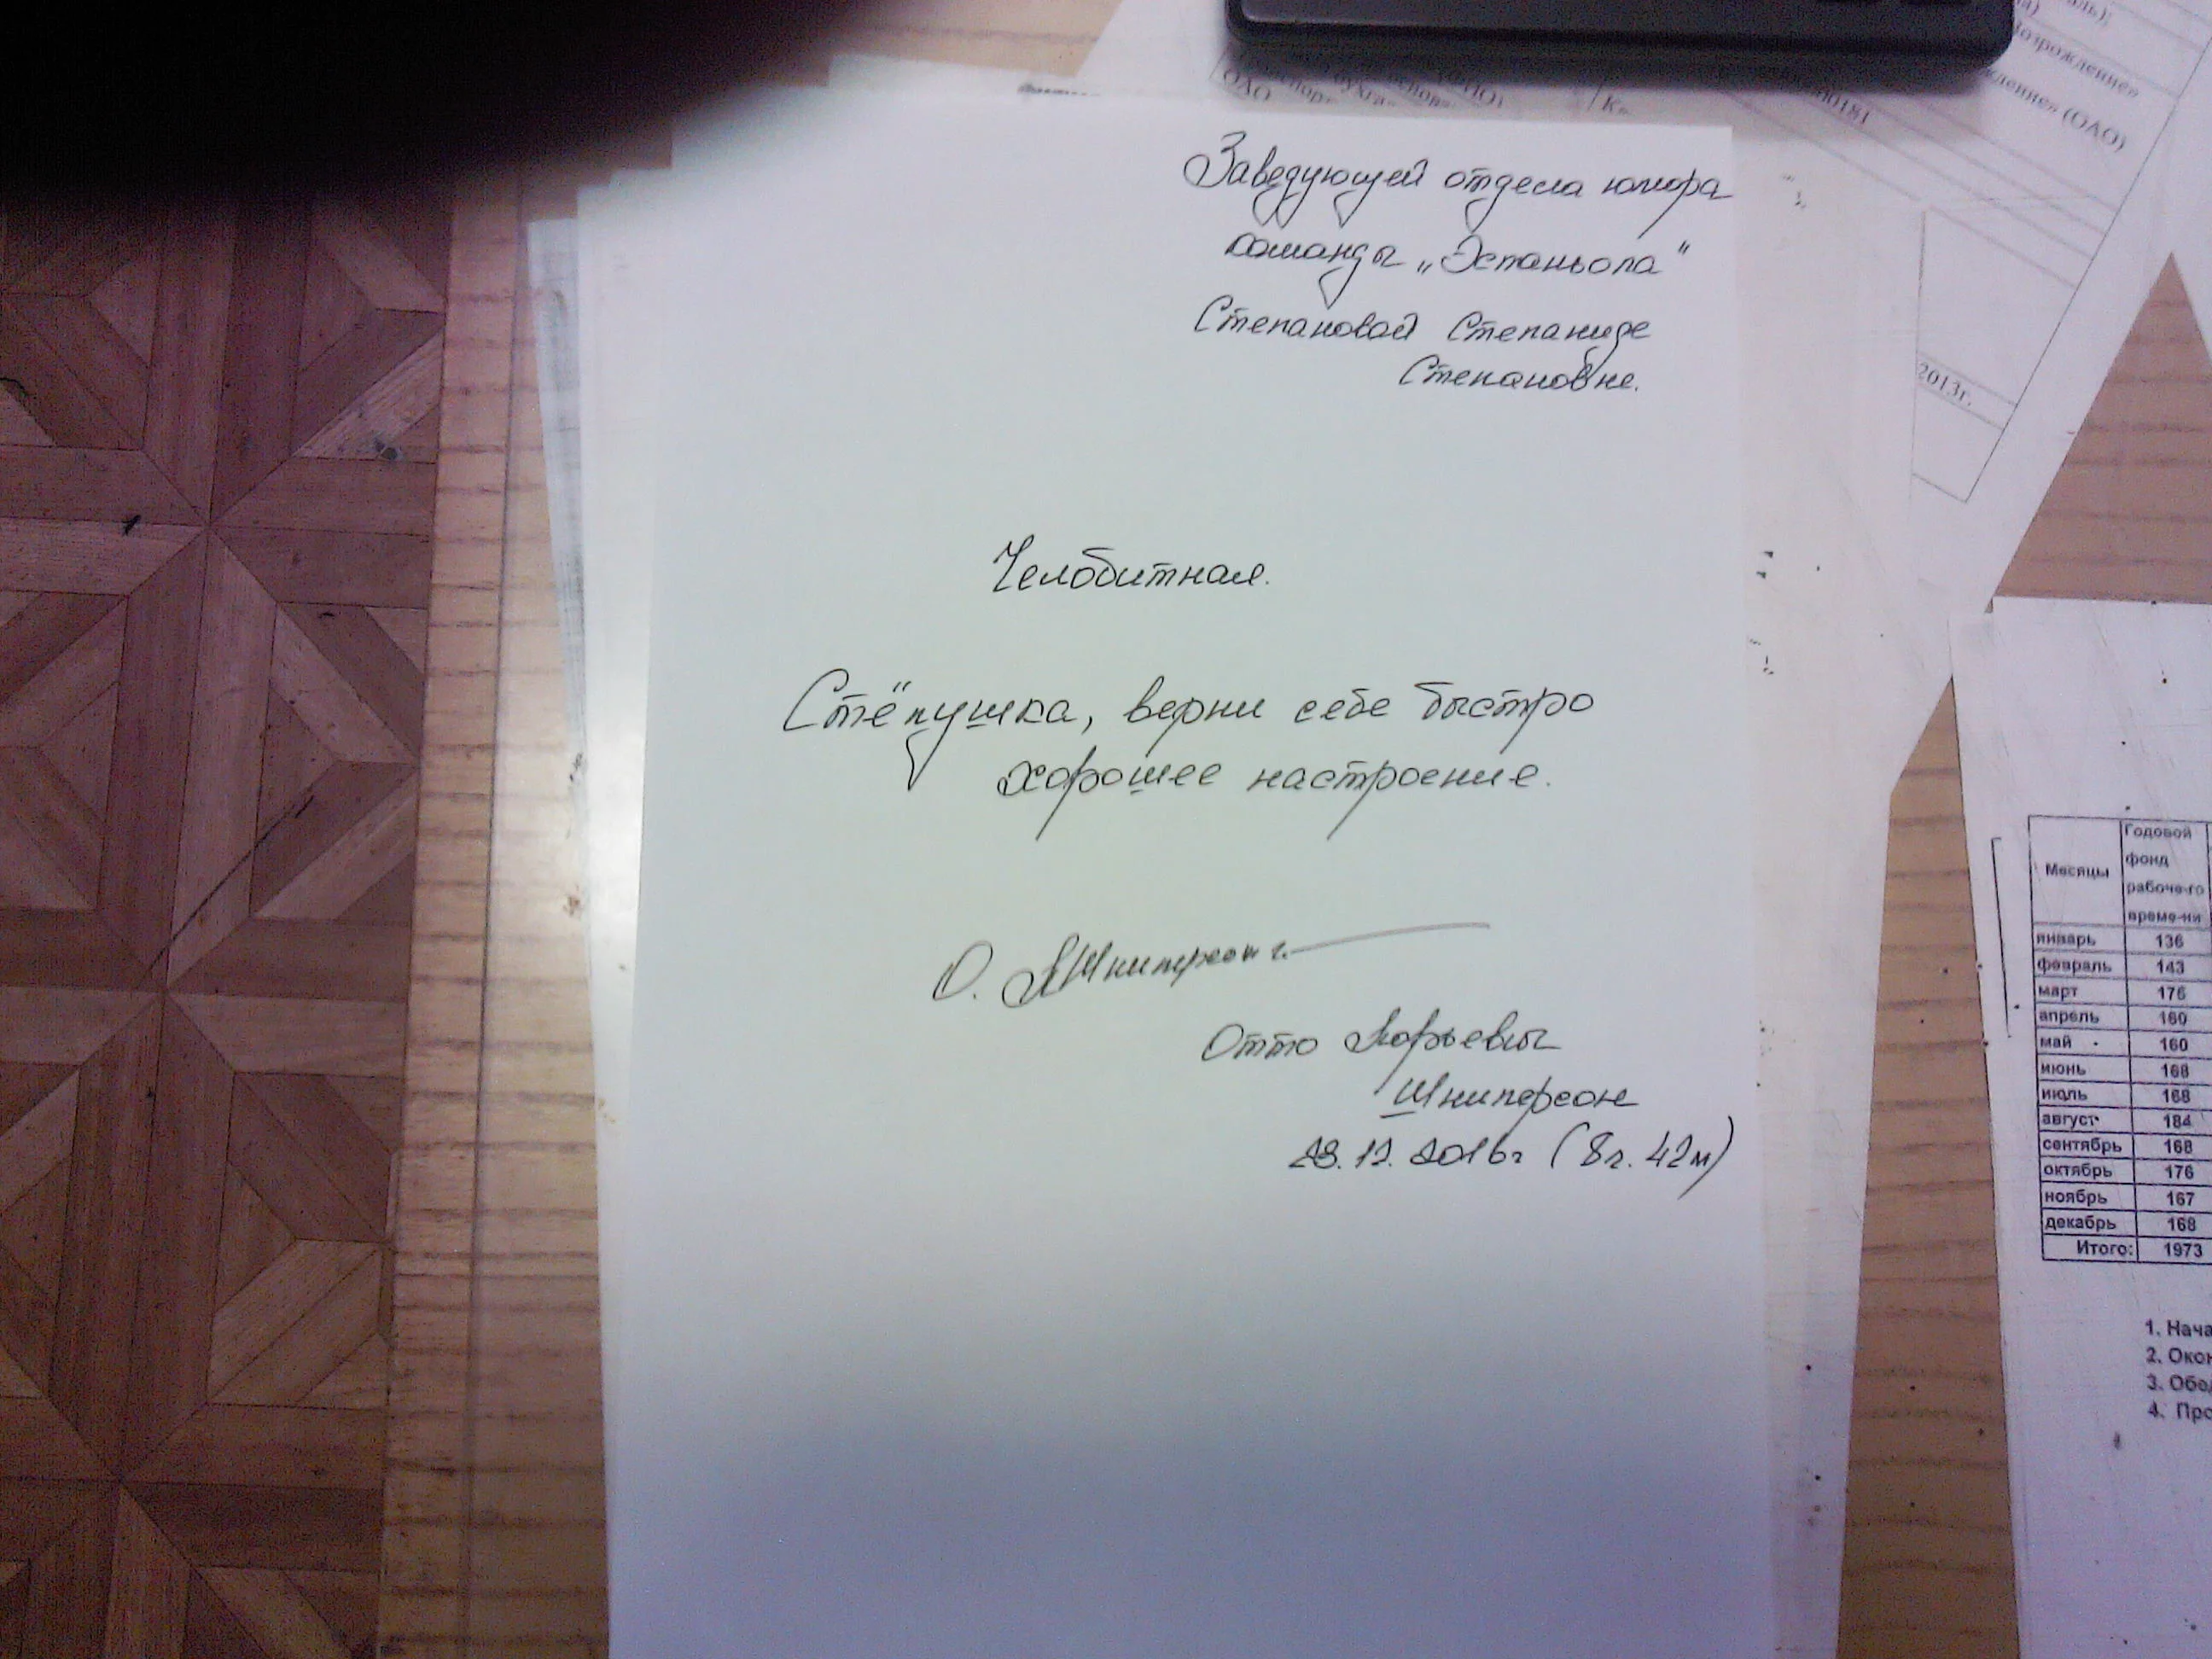 Заведующей отдела юмора
команды „Эспаньола"
Степановой Степаниде
Степановне.
Челобитная.
Стёпушка, верни себе быстро
хорошее настроение.
О. Шниперсон
Отто Юрьевич
Шниперсон
23.12.2016г (8ч. 42м)
озрождение»
ждение» (ОАО)
00181
ОАО
2013г.
Месяцы Годовой
фонд
рабоче-го
време-ни
январь 136
февраль 143
март 176
апрель 160
май 160
июнь 168
июль 168
август 184
сентябрь 168
октябрь 176
ноябрь 167
декабрь 168
Итого: 1973
1. Нача
2. Окон
3. Обед
4. Про